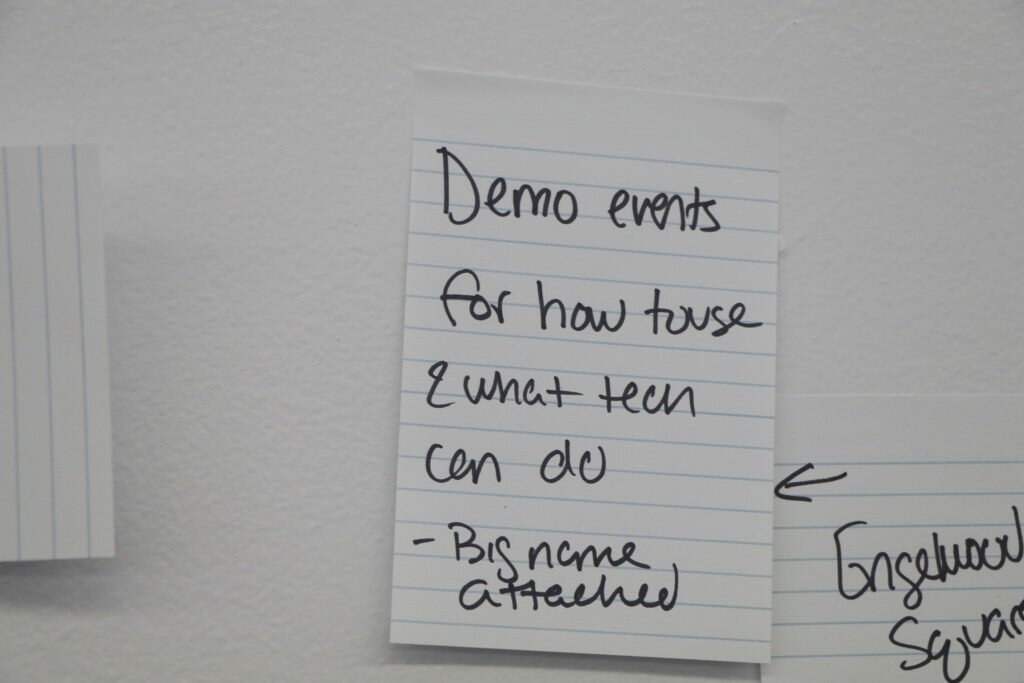 Demo events
for how to use
& what tech
can do
- Big name
attached
←
Engelwood
Squar